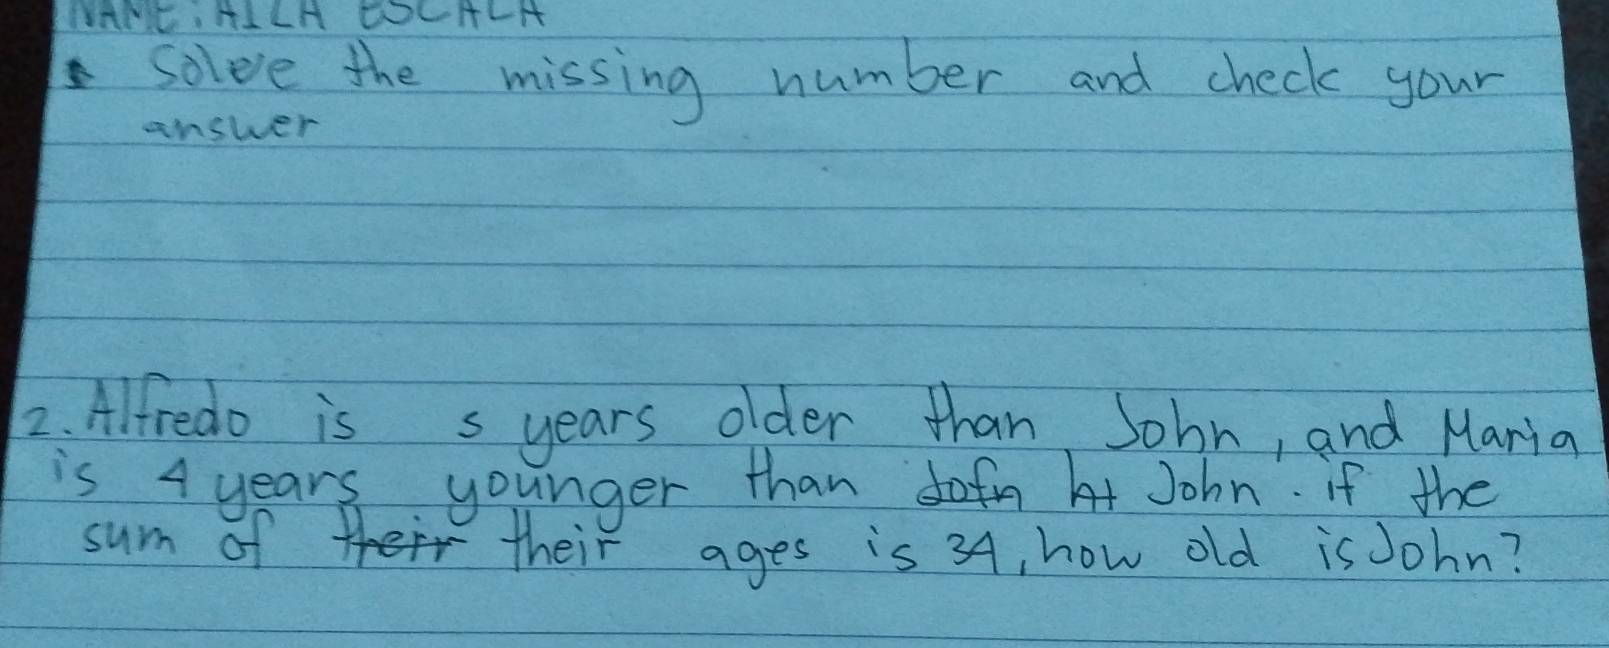 NAME: AILA ESCALA
Solve the missing number and check your
answer
2. Alfredo is s years older than John, and Maria
is 4 years younger than John. if the
sum of their their ages is 34, how old is John?